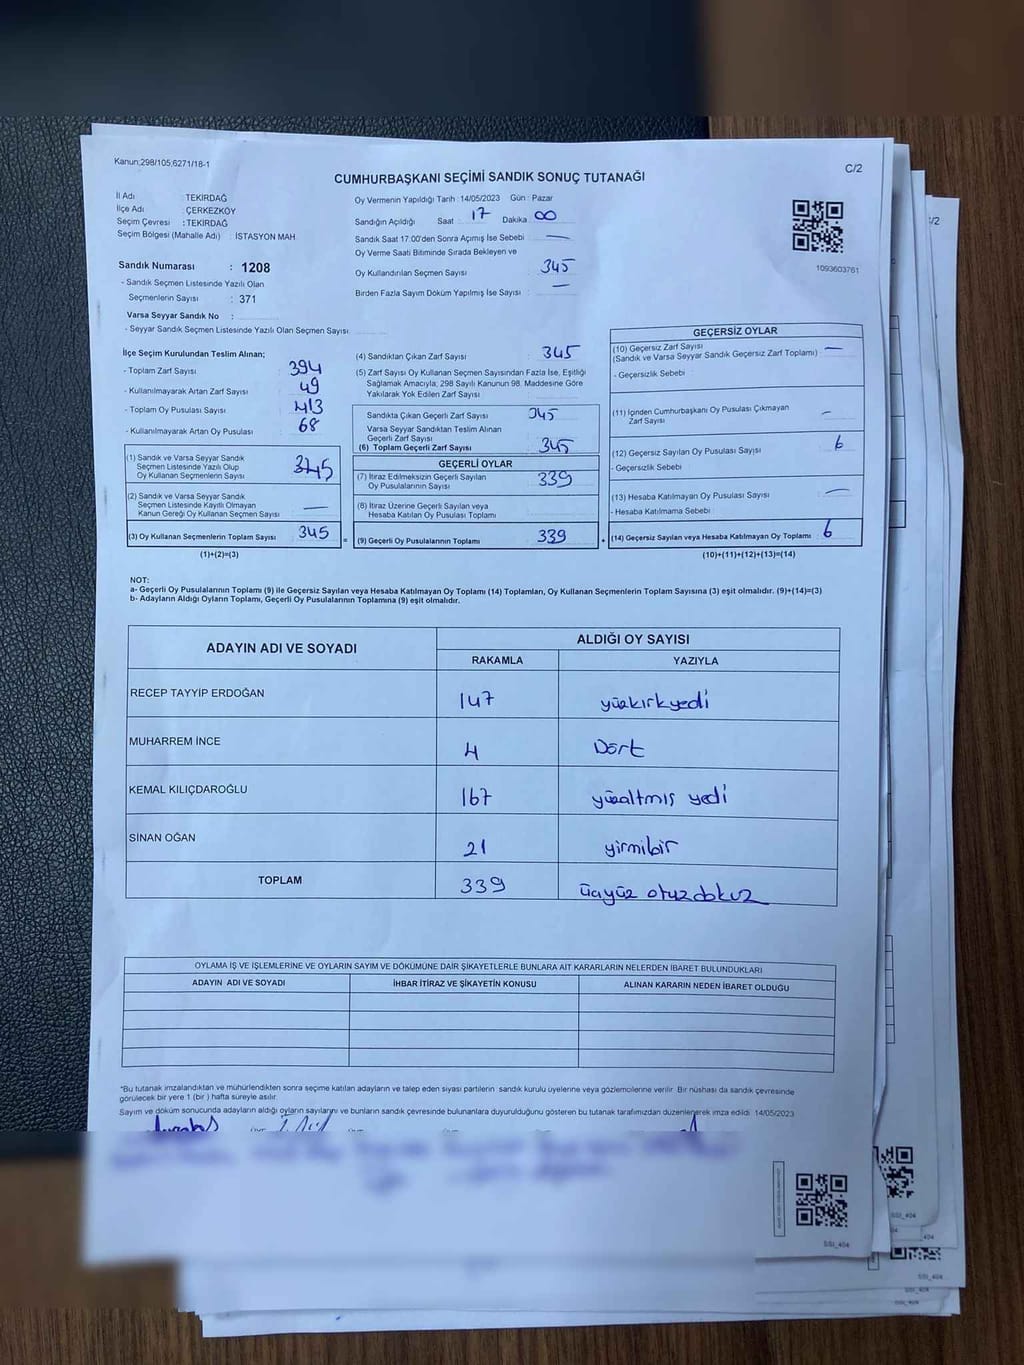 Kanun;298/105,6271/18-1
C/2
CUMHURBAŞKANI SEÇİMİ SANDIK SONUÇ TUTANAĞI
İl Adı : TEKİRDAĞ
İlçe Adı : ÇERKEZKÖY
Seçim Çevresi : TEKİRDAĞ
Seçim Bölgesi (Mahalle Adı) : İSTASYON MAH.
Sandık Numarası : 1208
- Sandık Seçmen Listesinde Yazılı Olan
Seçmenlerin Sayısı : 371
Varsa Seyyar Sandık No :
- Seyyar Sandık Seçmen Listesinde Yazılı Olan Seçmen Sayısı:
Oy Vermenin Yapıldığı Tarih :14/05/2023 Gün : Pazar
Sandığın Açıldığı Saat : 17 Dakika : 00
Sandık Saat 17:00'den Sonra Açımış İse Sebebi : —
Oy Verme Saati Bitiminde Sırada Bekleyen ve
Oy Kullandırılan Seçmen Sayısı : 345
Birden Fazla Sayım Döküm Yapılmış İse Sayısı : —
1093603761
İlçe Seçim Kurulundan Teslim Alınan;
- Toplam Zarf Sayısı : 394
- Kullanılmayarak Artan Zarf Sayısı : 49
- Toplam Oy Pusulası Sayısı : 413
- Kullanılmayarak Artan Oy Pusulası : 68
(1) Sandık ve Varsa Seyyar Sandık
Seçmen Listesinde Yazılı Olup
Oy Kullanan Seçmenlerin Sayısı 345
(2) Sandık ve Varsa Seyyar Sandık
Seçmen Listesinde Kayıtlı Olmayan
Kanun Gereği Oy Kullanan Seçmen Sayısı —
(3) Oy Kullanan Seçmenlerin Toplam Sayısı 345 =
(1)+(2)=(3)
(4) Sandıktan Çıkan Zarf Sayısı : 345
(5) Zarf Sayısı Oy Kullanan Seçmen Sayısından Fazla İse, Eşitliği
Sağlamak Amacıyla; 298 Sayılı Kanunun 98. Maddesine Göre
Yakılarak Yok Edilen Zarf Sayısı :
Sandıkta Çıkan Geçerli Zarf Sayısı : 345
Varsa Seyyar Sandıktan Teslim Alınan
Geçerli Zarf Sayısı :
(6) Toplam Geçerli Zarf Sayısı : 345
GEÇERLİ OYLAR
(7) İtiraz Edilmeksizin Geçerli Sayılan
Oy Pusulalarının Sayısı : 339
(8) İtiraz Üzerine Geçerli Sayılan veya
Hesaba Katılan Oy Pusulası Toplamı
(9) Geçerli Oy Pusulalarının Toplamı 339 +
GEÇERSİZ OYLAR
(10) Geçersiz Zarf Sayısı
(Sandık ve Varsa Seyyar Sandık Geçersiz Zarf Toplamı) : —
- Geçersizlik Sebebi :
(11) İçinden Cumhurbaşkanı Oy Pusulası Çıkmayan
Zarf Sayısı —
(12) Geçersiz Sayılan Oy Pusulası Sayısı : 6
- Geçersizlik Sebebi
(13) Hesaba Katılmayan Oy Pusulası Sayısı : —
- Hesaba Katılmama Sebebi
(14) Geçersiz Sayılan veya Hesaba Katılmayan Oy Toplamı 6
(10)+(11)+(12)+(13)=(14)
NOT:
a- Geçerli Oy Pusulalarının Toplamı (9) ile Geçersiz Sayılan veya Hesaba Katılmayan Oy Toplamı (14) Toplamları, Oy Kullanan Seçmenlerin Toplam Sayısına (3) eşit olmalıdır. (9)+(14)=(3)
b- Adayların Aldığı Oyların Toplamı, Geçerli Oy Pusulalarının Toplamına (9) eşit olmalıdır.
ADAYIN ADI VE SOYADI
ALDIĞI OY SAYISI
RAKAMLA YAZIYLA
RECEP TAYYİP ERDOĞAN 147 yüzkırkyedi
MUHARREM İNCE 4 Dört
KEMAL KILIÇDAROĞLU 167 yüzaltmış yedi
SİNAN OĞAN 21 yirmibir
TOPLAM 339 üçyüz otuzdokuz
OYLAMA İŞ VE İŞLEMLERİNE VE OYLARIN SAYIM VE DÖKÜMÜNE DAİR ŞİKAYETLERLE BUNLARA AİT KARARLARIN NELERDEN İBARET BULUNDUKLARI
ADAYIN ADI VE SOYADI İHBAR İTİRAZ VE ŞİKAYETİN KONUSU ALINAN KARARIN NEDEN İBARET OLDUĞU
*Bu tutanak imzalandıktan ve mühürlendikten sonra seçime katılan adayların ve talep eden siyasi partilerin sandık kurulu üyelerine veya gözlemcilerine verilir. Bir nüshası da sandık çevresinde
görülecek bir yere 1 (bir ) hafta süreyle asılır.
Sayım ve döküm sonucunda adayların aldığı oyların sayılarını ve bunların sandık çevresinde bulunanlara duyurulduğunu gösteren bu tutanak tarafımızdan düzenlenerek imza edildi. 14/05/2023
SSI_404
/2
SSI_404
404
SSI_404
SSI_404
SSI_404